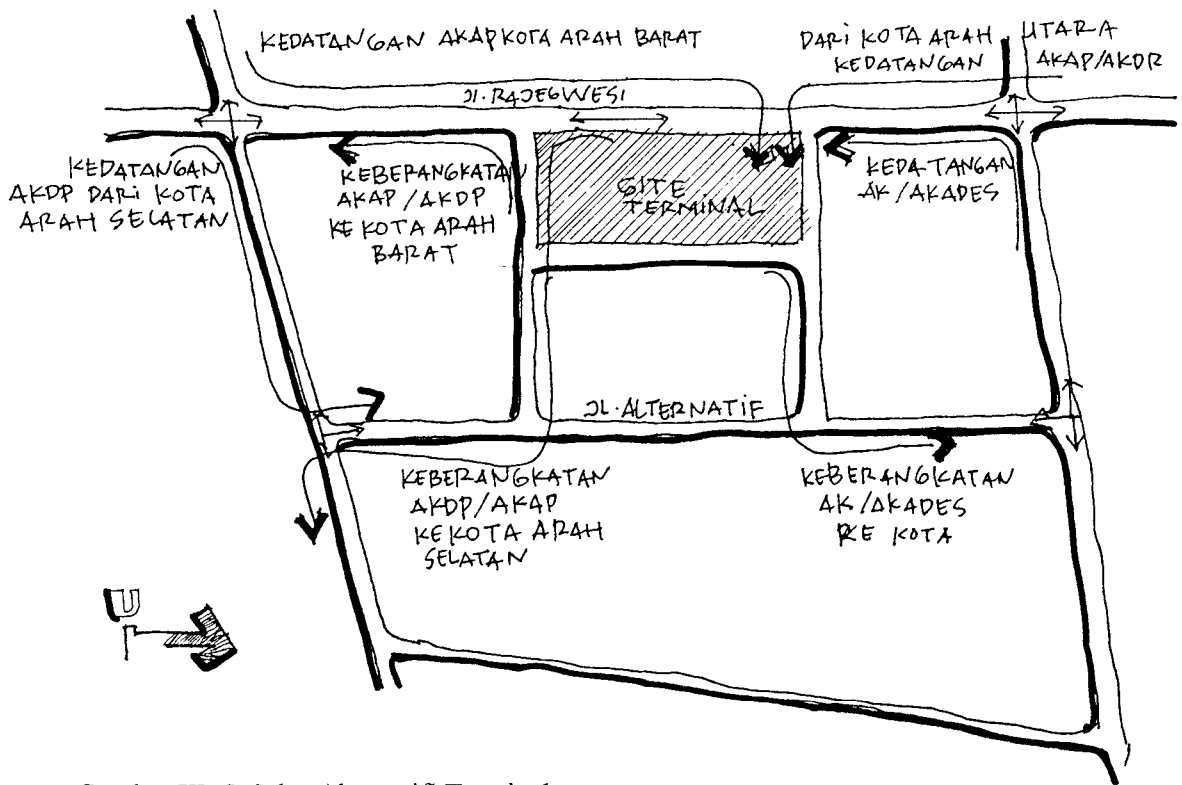 KEDATANGAN AKAP KOTA ARAH BARAT
DARI KOTA ARAH UTARA
KEDATANGAN AKAP/AKDP
Jl. RAJEGWESI
KEDATANGAN
AKDP DARI KOTA
ARAH SELATAN
KEBERANGKATAN
AKAP/AKDP
KE KOTA ARAH
BARAT
SITE
TERMINAL
KEDATANGAN
AK/AKADES
JL. ALTERNATIF
KEBERANGKATAN
AKDP/AKAP
KE KOTA ARAH
SELATAN
KEBERANGKATAN
AK/AKADES
KE KOTA
U